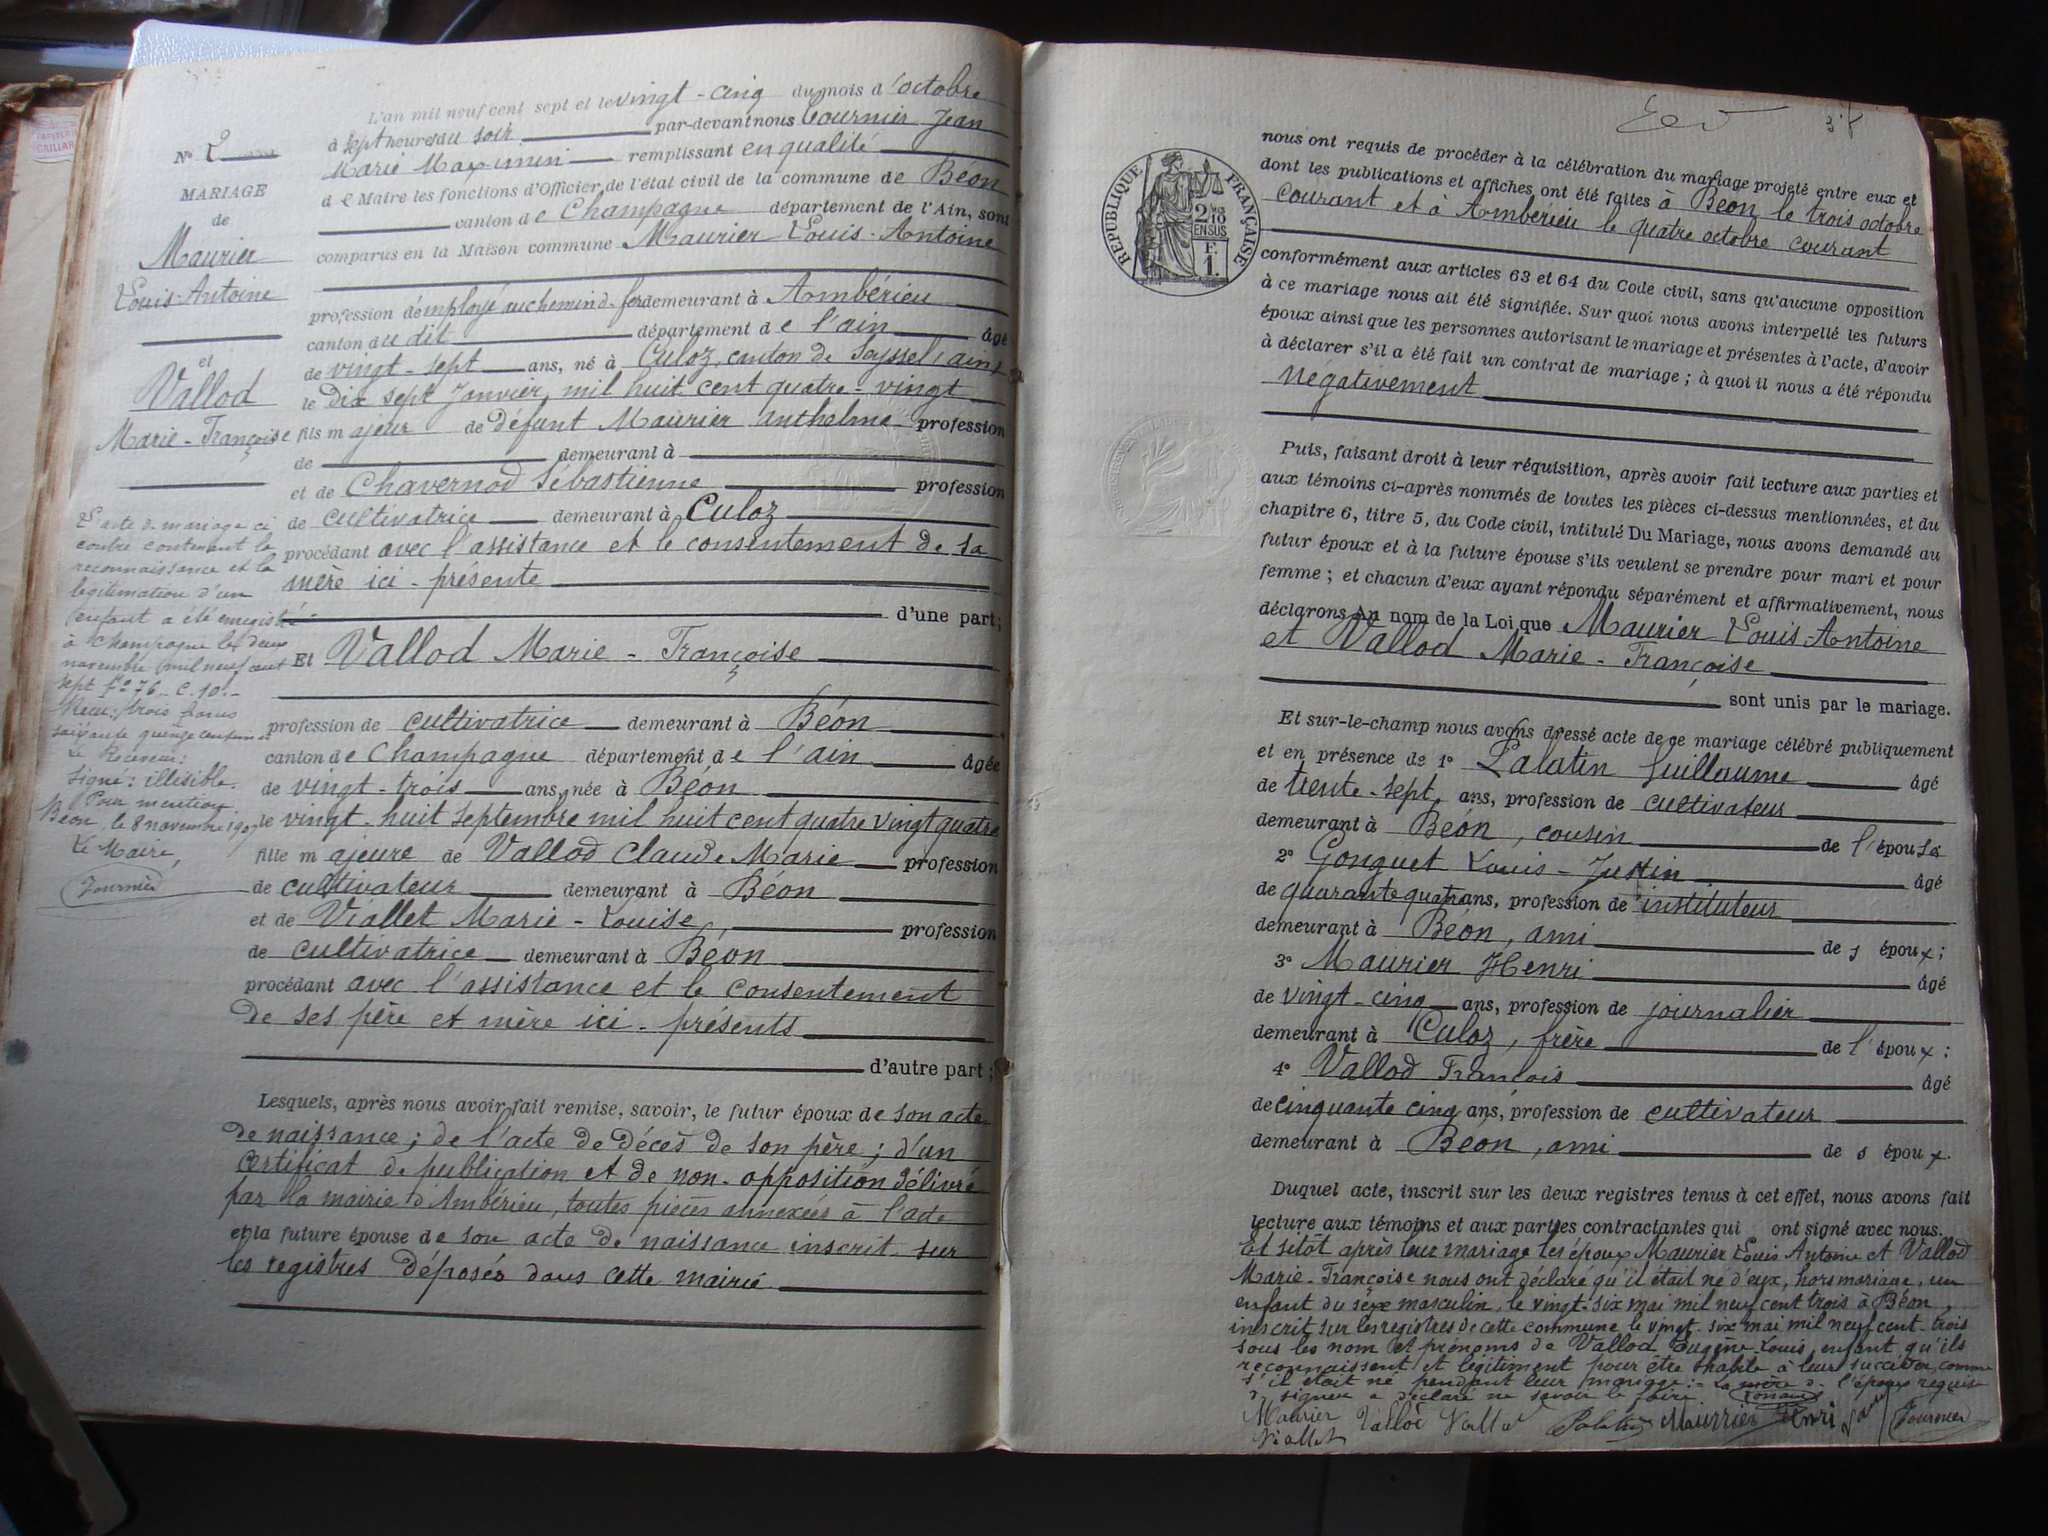 L'an mil neuf cent sept et le vingt-cinq du mois d'octobre
à sept heures du soir par-devant nous Tournier Jean
Marie Maximin remplissant en qualité
de Maire les fonctions d'Officier de l'état civil de la commune de Béon
canton de Champagne département de l'Ain, sont
comparus en la Maison commune Maurier Louis-Antoine
profession d'employé au chemin d. fer demeurant à Ambérieu
canton du dit département de l'ain âgé
de vingt-sept ans, né à Culoz, canton de Seyssel (ain)
le Dix sept Janvier mil huit cent quatre-vingt
fils majeur de défunt Maurier anthelme profession
de demeurant à
et de Chavernod Sébastienne profession
de cultivatrice demeurant à Culoz
procédant avec l'assistance et le consentement de sa
mère ici-présente
d'une part;
Et Vallod Marie-Françoise
profession de cultivatrice demeurant à Béon
canton de Champagne département de l'ain âgée
de vingt-trois ans, née à Béon
le vingt-huit septembre mil huit cent quatre vingt quatre
fille majeure de Vallod Claude Marie profession
de cultivateur demeurant à Béon
et de Viallet Marie-Louise, profession
de cultivatrice demeurant à Béon
procédant avec l'assistance et le consentement
de ses père et mère ici-présents
d'autre part;
Lesquels, après nous avoir fait remise, savoir, le futur époux de son acte
de naissance; de l'acte de décès de son père; d'un
certificat de publication et de non-opposition délivré
par la mairie d'Ambérieu, toutes pièces annexées à l'acte
et la future épouse de son acte de naissance inscrit sur
les registres déposés dans cette mairie
N° 2
MARIAGE
de
Maurier
Louis-Antoine
et
Vallod
Marie-Françoise
L'acte de mariage ci
contre contenant la
reconnaissance et la
légitimation d'un
enfant a été enregistré
à Champagne le deux
novembre mil neuf cent
sept f° 76 C. 10.
Reçu: trois francs
soixante quinze centimes
Le Receveur:
signé: illisible.
Pour mention
Béon, le 8 novembre 1907
Le Maire,
Tournier
RÉPUBLIQUE FRANÇAISE
2/10
EN SUS
F.
1.
nous ont requis de procéder à la célébration du mariage projeté entre eux et
dont les publications et affiches ont été faites à Béon le trois octobre
courant et à Ambérieu le quatre octobre courant
conformément aux articles 63 et 64 du Code civil, sans qu'aucune opposition
à ce mariage nous ait été signifiée. Sur quoi nous avons interpellé les futurs
époux ainsi que les personnes autorisant le mariage et présentes à l'acte, d'avoir
à déclarer s'il a été fait un contrat de mariage; à quoi il nous a été répondu
négativement
Puis, faisant droit à leur réquisition, après avoir fait lecture aux parties et
aux témoins ci-après nommés de toutes les pièces ci-dessus mentionnées, et du
chapitre 6, titre 5, du Code civil, intitulé Du Mariage, nous avons demandé au
futur époux et à la future épouse s'ils veulent se prendre pour mari et pour
femme; et chacun d'eux ayant répondu séparément et affirmativement, nous
déclarons Au nom de la Loi que Maurier Louis-Antoine
et Vallod Marie-Françoise
sont unis par le mariage.
Et sur-le-champ nous avons dressé acte de ce mariage célébré publiquement
et en présence de 1° Palatin Guillaume âgé
de trente-sept ans, profession de cultivateur
demeurant à Béon, cousin de l'épouse
2° Gonguet Louis-Justin âgé
de quarante quatre ans, profession de instituteur
demeurant à Béon, ami des époux;
3° Maurier Henri âgé
de vingt-cinq ans, profession de journalier
demeurant à Culoz, frère de l'époux;
4° Vallod François âgé
de cinquante cinq ans, profession de cultivateur
demeurant à Béon, ami des époux.
Duquel acte, inscrit sur les deux registres tenus à cet effet, nous avons fait
lecture aux témoins et aux parties contractantes qui ont signé avec nous.
Et sitôt après leur mariage les époux Maurier Louis Antoine et Vallod
Marie-Françoise nous ont déclaré qu'il était né d'eux, hors mariage, un
enfant du sexe masculin, le vingt-six mai mil neuf cent trois à Béon,
inscrit sur les registres de cette commune le vingt-six mai mil neuf cent-trois
sous les nom et prénoms de Vallod Eugène-Louis, enfant qu'ils
reconnaissent et légitiment pour être habile à leur succéder, comme
s'il était né pendant leur mariage. La mère de l'époux requise
de signer a déclaré ne savoir le faire
Maurier Vallod Vallod Palatin Maurrier Henri Tournier
Viallet